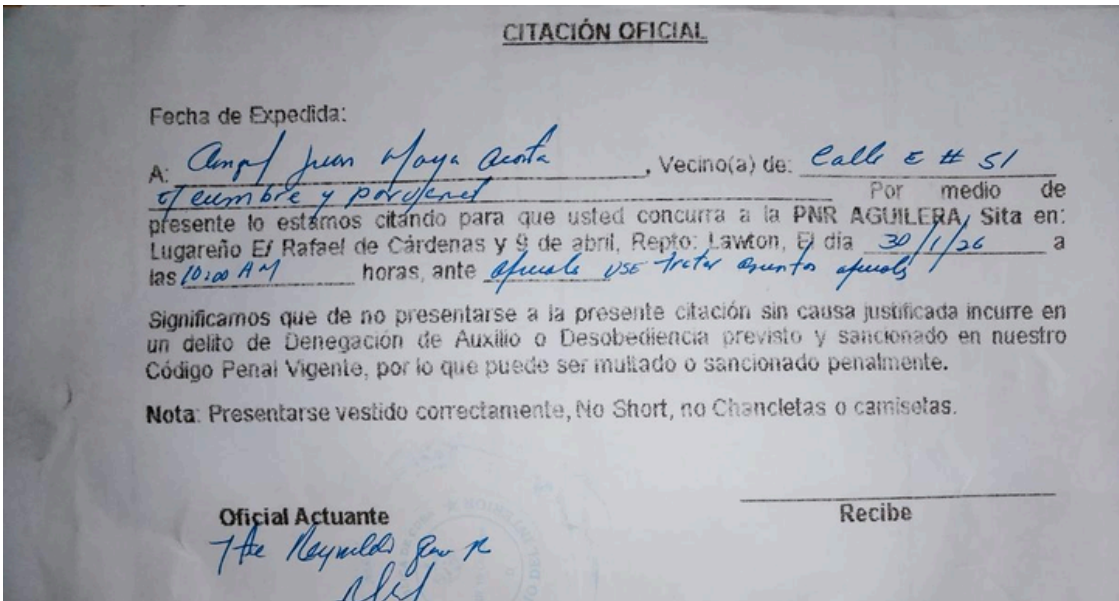 CITACIÓN OFICIAL
Fecha de Expedida:
A: Angel Juan Moya Acosta, Vecino(a) de: Calle E # 51
e/ cumbre y porvenir Por medio de
presente lo estamos citando para que usted concurra a la PNR AGUILERA, Sita en:
Lugareño E/ Rafael de Cárdenas y 9 de abril, Repto: Lawton, El día 30/1/26 a
las 10:00 AM horas, ante tratar asuntos
Significamos que de no presentarse a la presente citación sin causa justificada incurre en
un delito de Denegación de Auxilio o Desobediencia previsto y sancionado en nuestro
Código Penal Vigente, por lo que puede ser multado o sancionado penalmente.
Nota: Presentarse vestido correctamente, No Short, no Chancletas o camisetas.
Oficial Actuante
Recibe